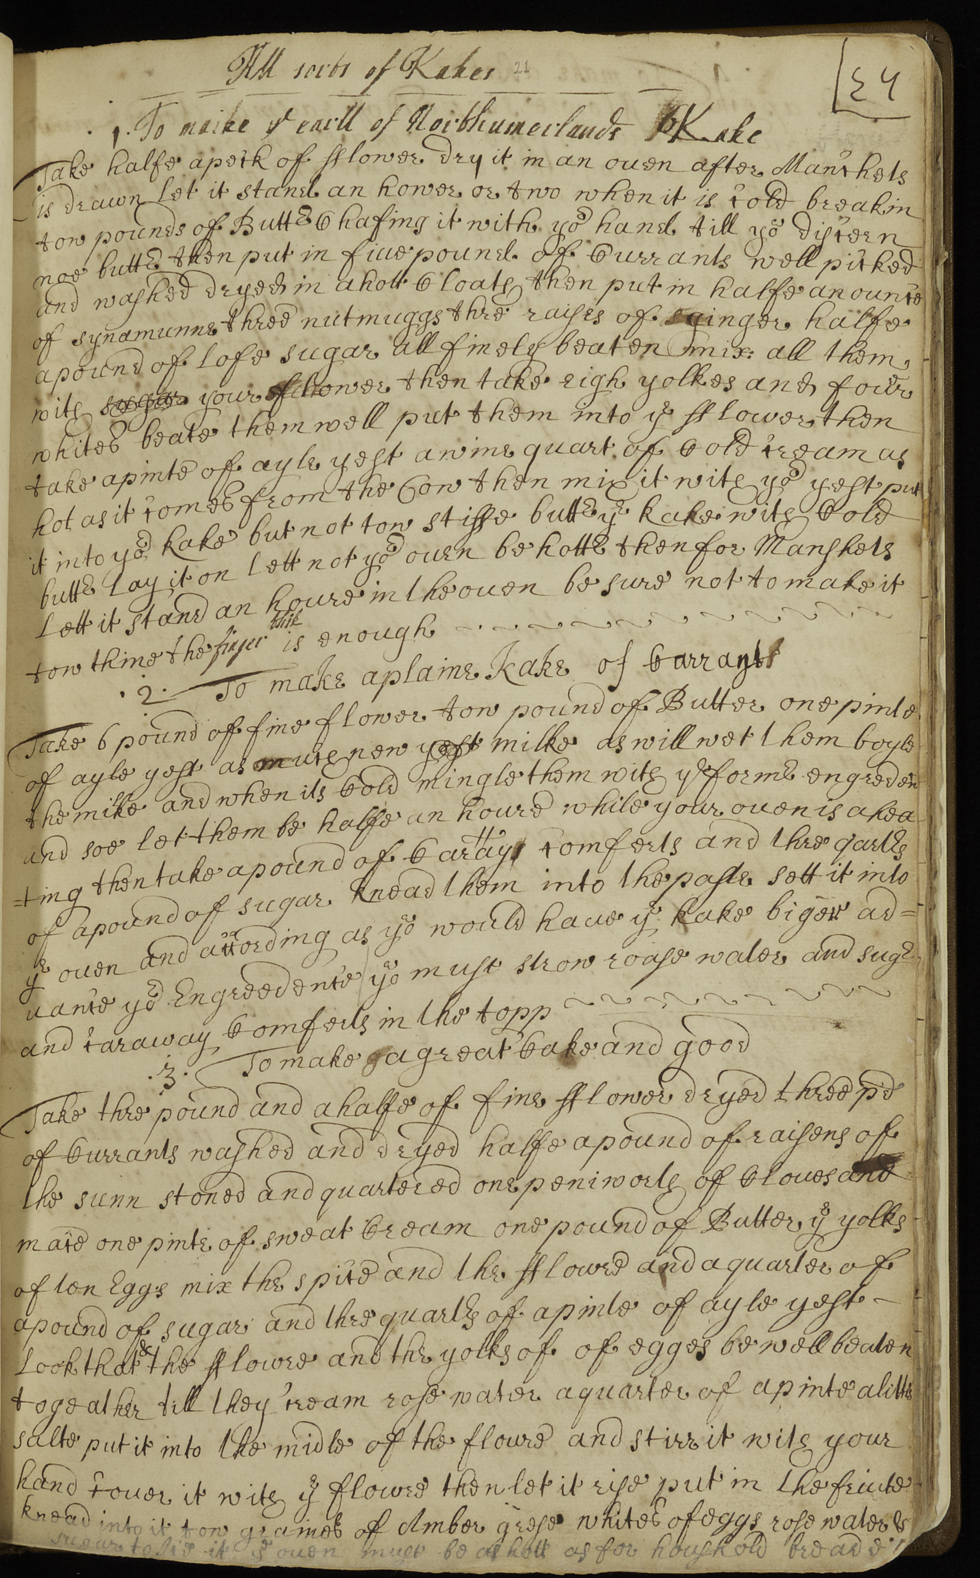 All sorts of Kakes 21
47
1. To make ye earll of Northumerlands Kake
Take halfe a peck of fflower dry it in an ouen after Manchets
is drawn let it stand an hower or two when it is cold break in
tow pounds of Butter Chafing it with yor hand till yo discern
noe butter then put in fiue pound of Currants well picked
and washed dryed in a hott Cloath then put in halfe an ounce
of synamunne three nutmuggs thre raises of ginger halfe
a pound of lofe sugar all finely beaten mix all them
with your flower then take eigh yolkes and four
whites beate them well put them into ye fflower then
take a pinte of ayle yest a wine quart of Cold cream as
hot as it comes from the Cow then mix it with yor yest put
it into yor kake but not tow stiffe butter ye kake with Cold
butter Lay it on lett not yor ouen be hotter then for Manshets
Lett it stand an houre in the ouen be sure not to make it
tow thine the finger thik is enough
2. To make a plaine Kake of Carraways
Take 6 pound of fine flower tow pound of Butter one pinte
of ayle yest as much new milke as will wet them boyle
the milke and when its Cold mingle them with ye former engreden
and soe let them be halfe an houre while your ouen is ahea
=ting then take a pound of Carraway comferts and thre qarters
of a pound of sugar knead them into the paste sett it into
ye ouen and according as yo would haue ye kake biger ad=
uance yor Engreedence yo must strow roase water and suger
and caraway Comferts in the topp
3. To make a great Cake and good
Take thre pound and a halfe of fine fflower dryed three pd
of Currants washed and dryed halfe a pound of raisens of
the sunn stoned and quartered one peniworth of Cloues and
mace one pinte of sweat Cream one pound of Butter ye yolks
of ten Eggs mix the spice and the fflowre and a quarter of
a pound of sugar and thre quarters of a pinte of ayle yest
Look that the fflowre and the yolks of of egges be well beaten
togeather till they cream rose water a quarter of a pinte a litte
salte put it into the midle of the floure and stirr it with your
hand couer it with ye flowre then let it rise put in the friute
knead into it tow graines of Amber grese whites of eggs rose water &
sugar to Ise it ye ouen must be as hott as for houshold bread